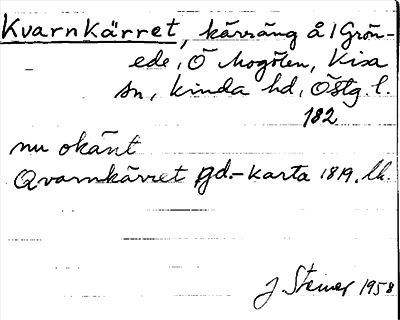 Kvarnkärret, kärräng å 1 Grön-
ede, Ö Mogölen, Kisa
sn, Kinda hd, Östg. l.
182
nu okänt
Qvarnkärret gd.-karta 1819. Lh.
J. Steiner 1958